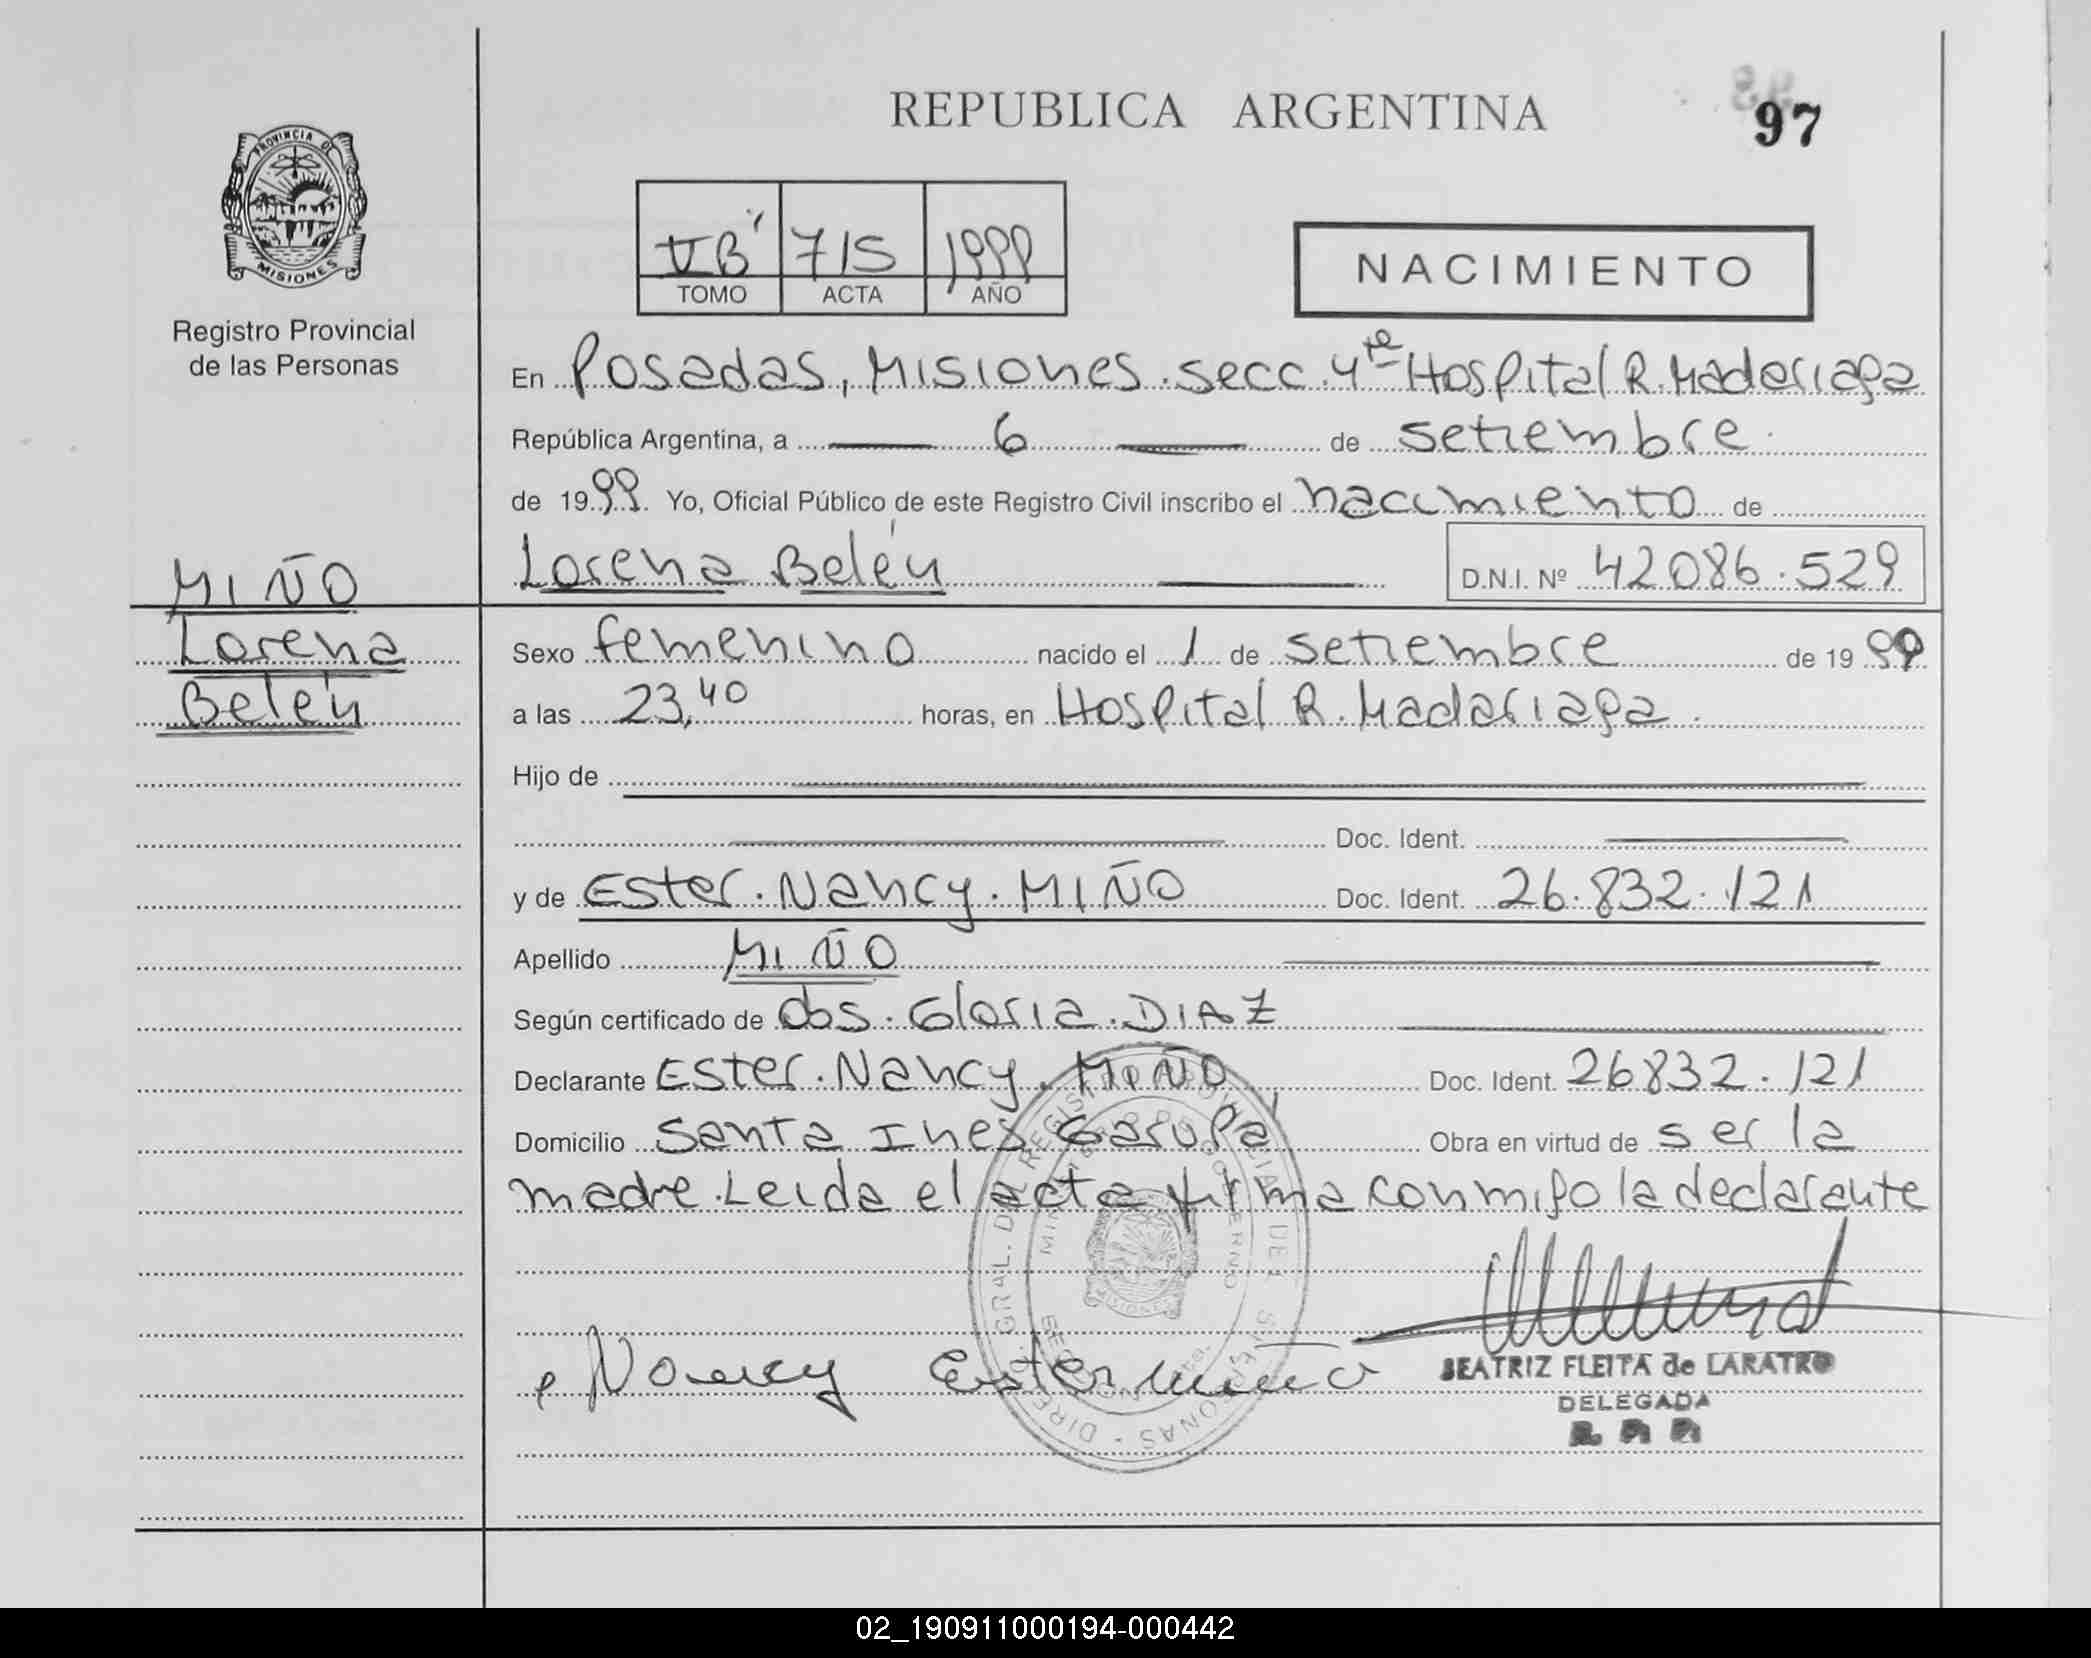 REPUBLICA ARGENTINA
97
PROVINCIA DE
MISIONES
Registro Provincial
de las Personas
VB 715 1999
TOMO ACTA AÑO
NACIMIENTO
En Posadas, Misiones. secc. 4ta Hospital R. Madariaga
República Argentina, a 6 de setiembre.
de 1999. Yo, Oficial Público de este Registro Civil inscribo el nacimiento de
Lorena Belén D.N.I. Nº 42086.529
MIÑO
Lorena
Belén
Sexo femenino nacido el 1 de setiembre de 1999
a las 23,40 horas, en Hospital R. Madariaga.
Hijo de
Doc. Ident.
y de Ester. Nancy. MIÑO Doc. Ident. 26.832.121
Apellido MIÑO
Según certificado de obs. Gloria. DIAZ
Declarante Ester. Nancy. MIÑO Doc. Ident. 26832.121
Domicilio Santa Ines Garupá Obra en virtud de ser la
madre. Leida el acta firma conmigo la declarante
Nancy Ester Miño
BEATRIZ FLEITA de LARATRO
DELEGADA
02_190911000194-000442